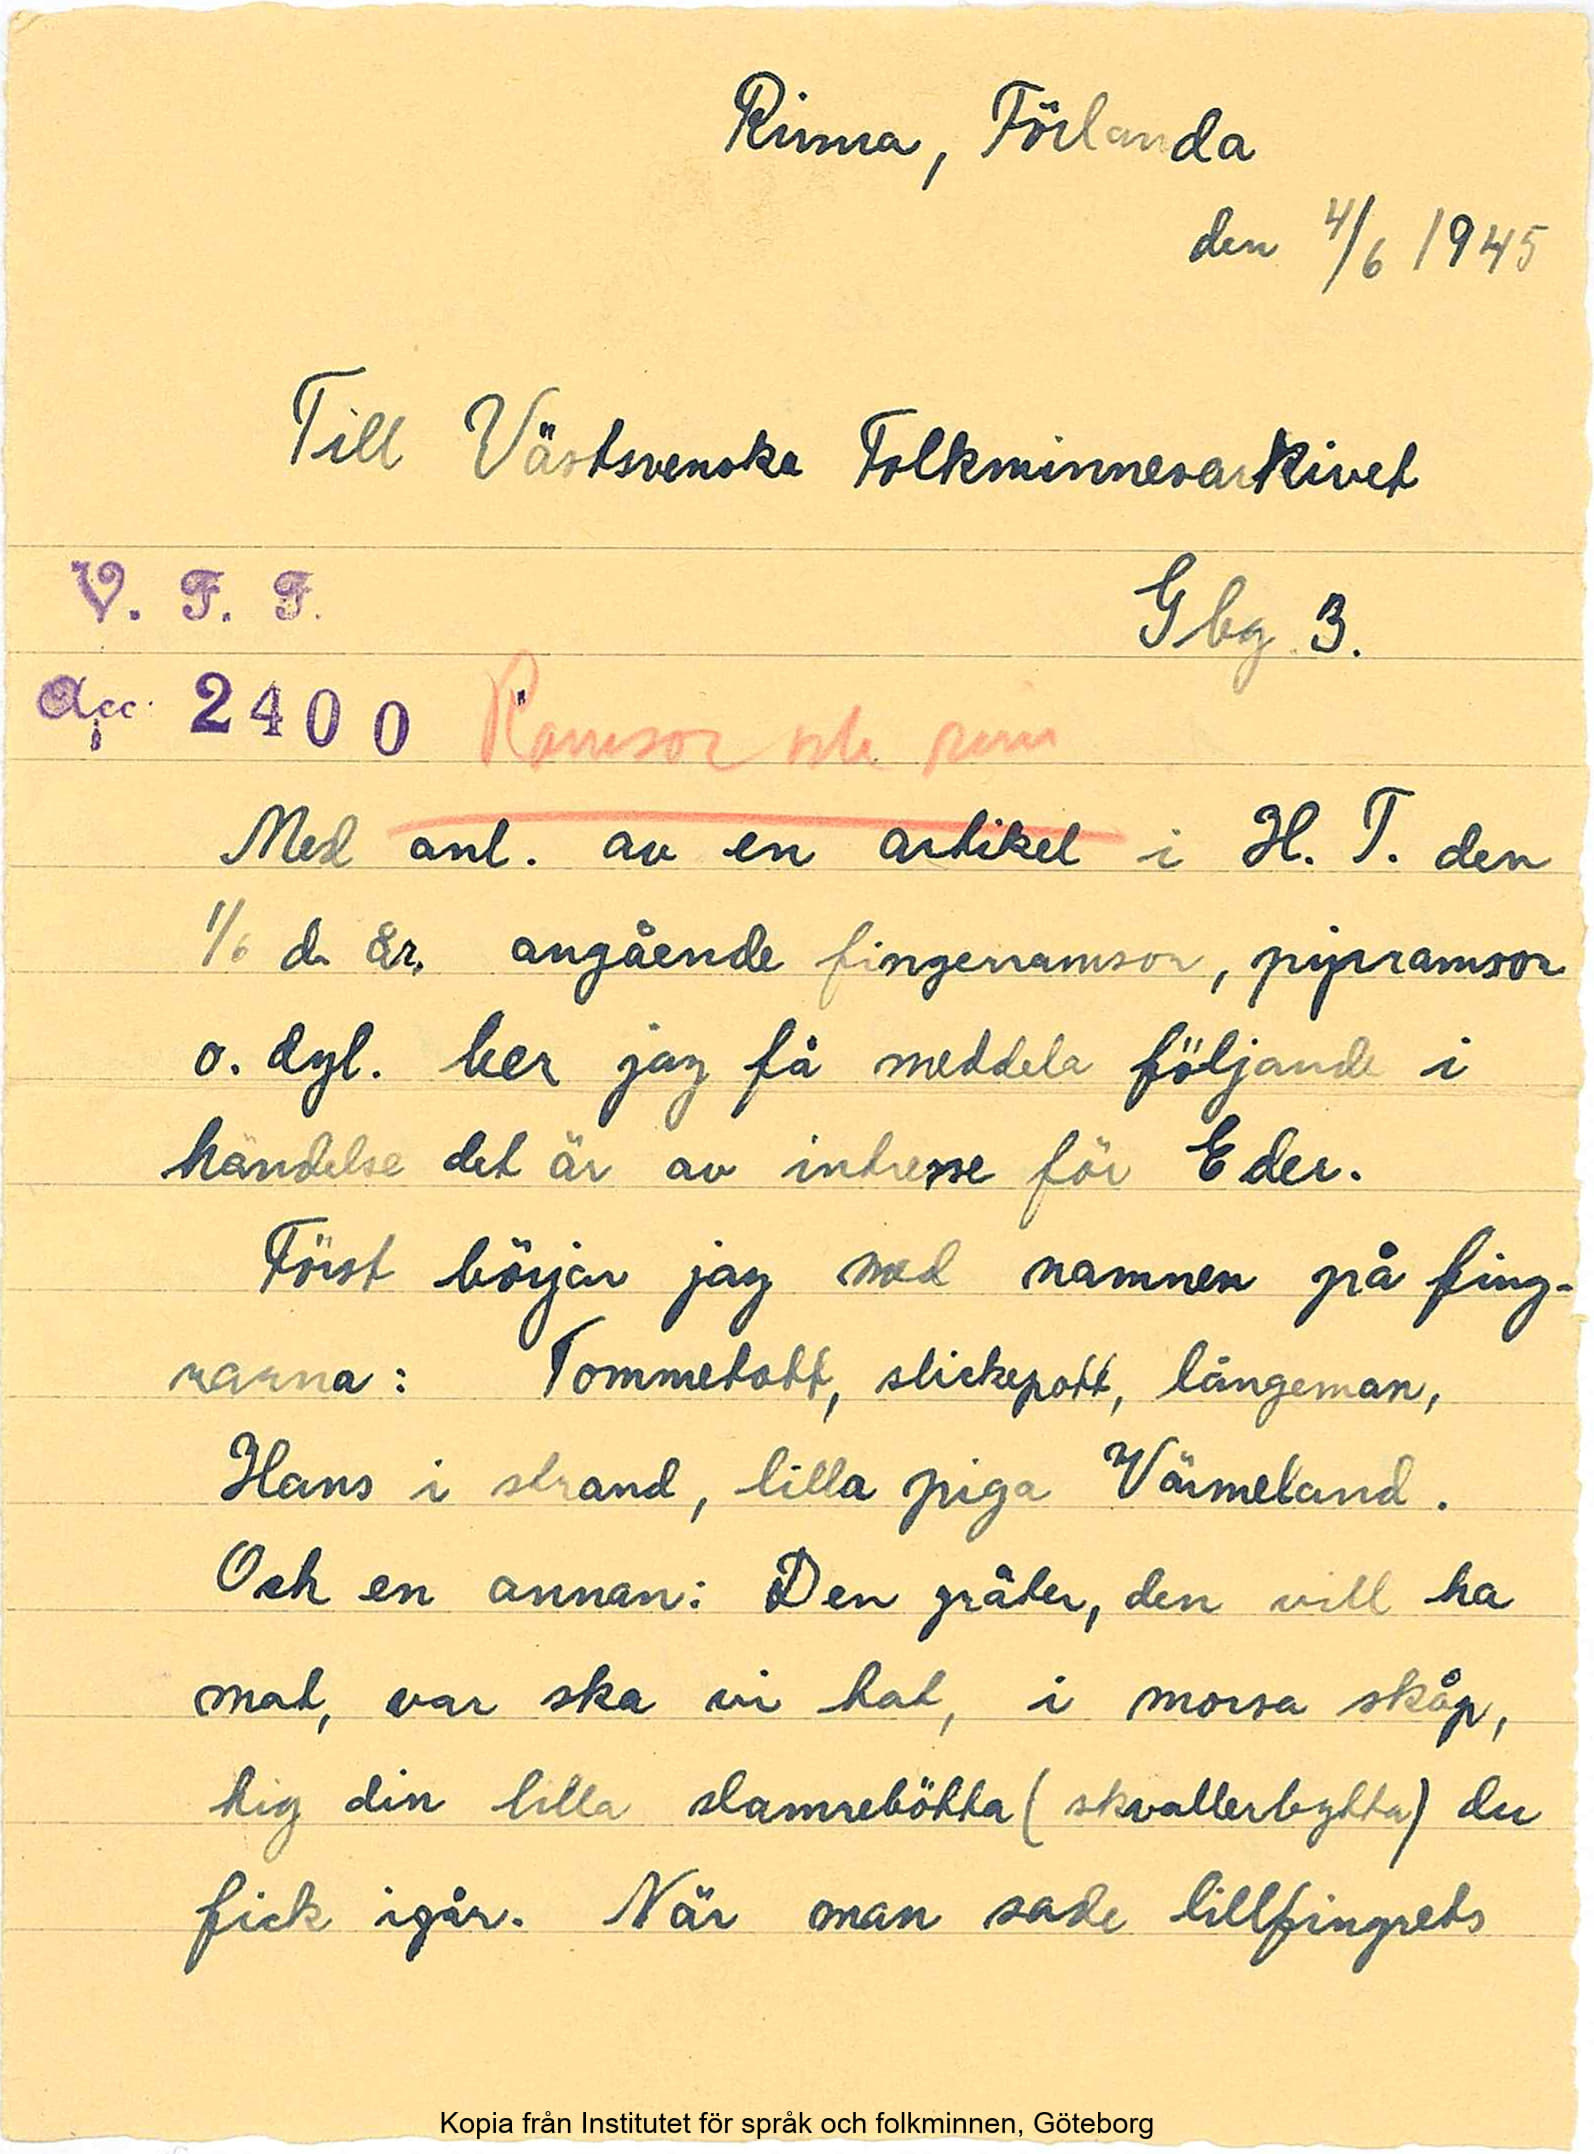 Rinna, Förlanda
den 4/6 1945
Till Västsvenska Folkminnesarkivet
V. F. F.
Gbg 3.
Acc. 2400 Ramsor och rim
Med anl. av en artikel i H. T. den
1/6 d. år. angående fingerramsor, pipramsor
o. dyl. ber jag få meddela följande i
händelse det är av intresse för Eder.
Först börjar jag med namnen på fing-
rarna: Tommetott, slickepott, långeman,
Hans i strand, lilla piga Värmeland.
Och en annan: Den gråter, den vill ha
mat, var ska vi tat, i morsa skåp,
tig din lilla slamrebötta (skvallerbytta) du
fick igår. När man sade lillfingrets
Kopia från Institutet för språk och folkminnen, Göteborg